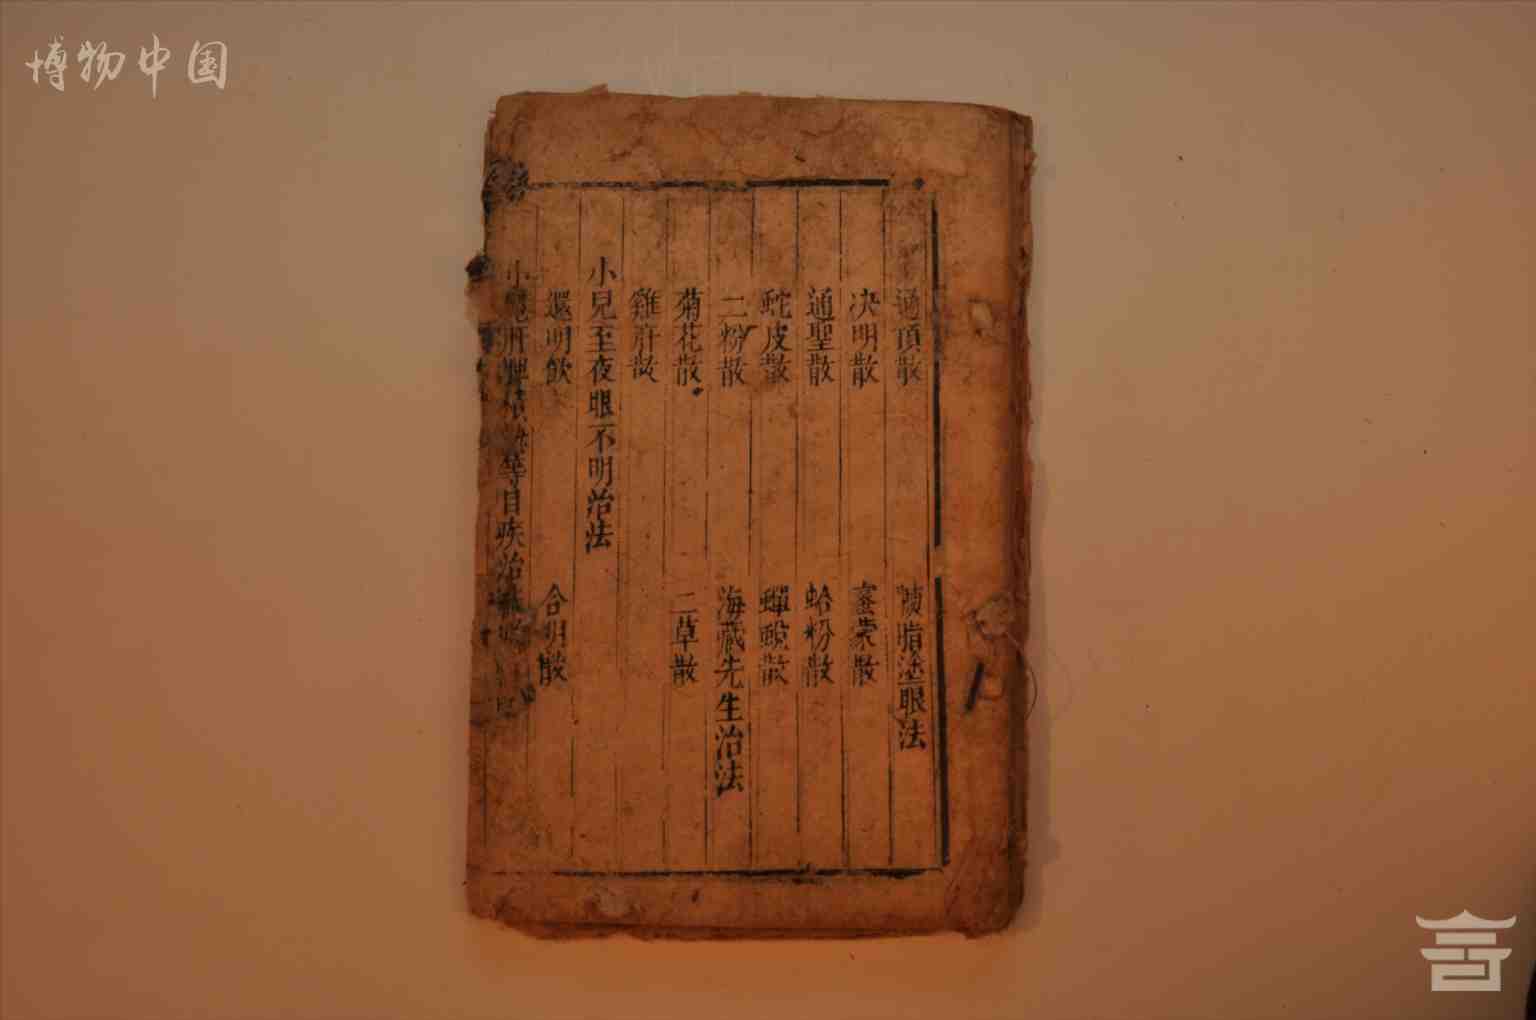 博物中国
通頂散 臏脂塗眼法
决明散 蜜蒙散
通聖散 蛤粉散
蛇皮散 蟬蛻散
二粉散 海藏先生治法
菊花散 二草散
雞肝散
小兒至夜眼不明治法
還明飲 合明散
小兒肝 積 等目疾治